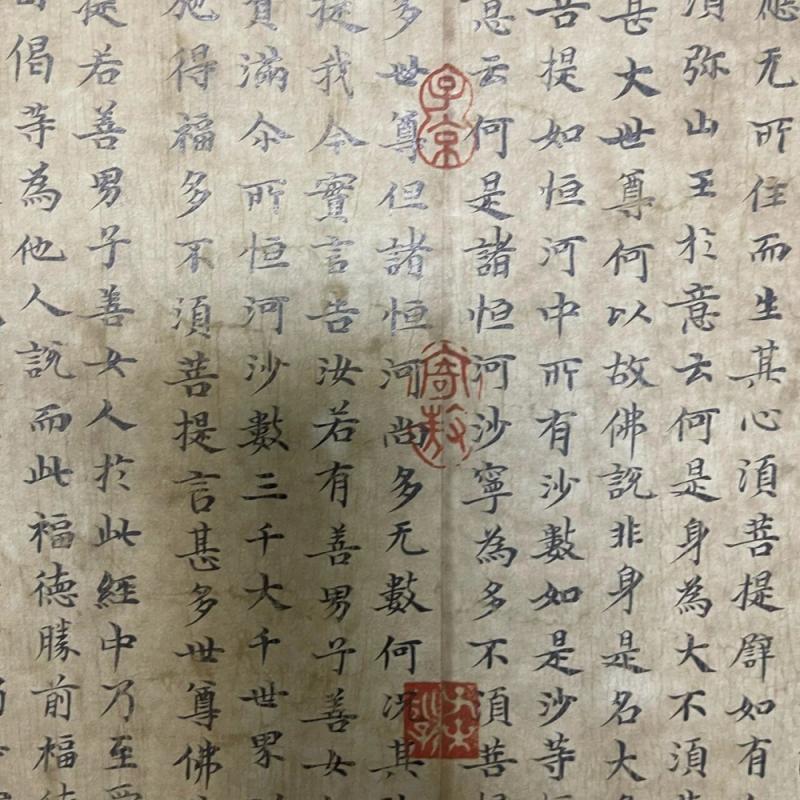 應无所住而生其心須菩提譬如有
須弥山王於意云何是身為大不須
甚大世尊何以故佛說非身是名大
菩提如恒河中所有沙數如是沙等
意云何是諸恒河沙寧為多不須菩
多世尊但諸恒河尚多无數何況其
提我今實言告汝若有善男子善女
寶滿尒所恒河沙數三千大千世界
施得福多不須菩提言甚多世尊佛
提若善男子善女人於此經中乃至受
偈等為他人說而此福德勝前福德
子京